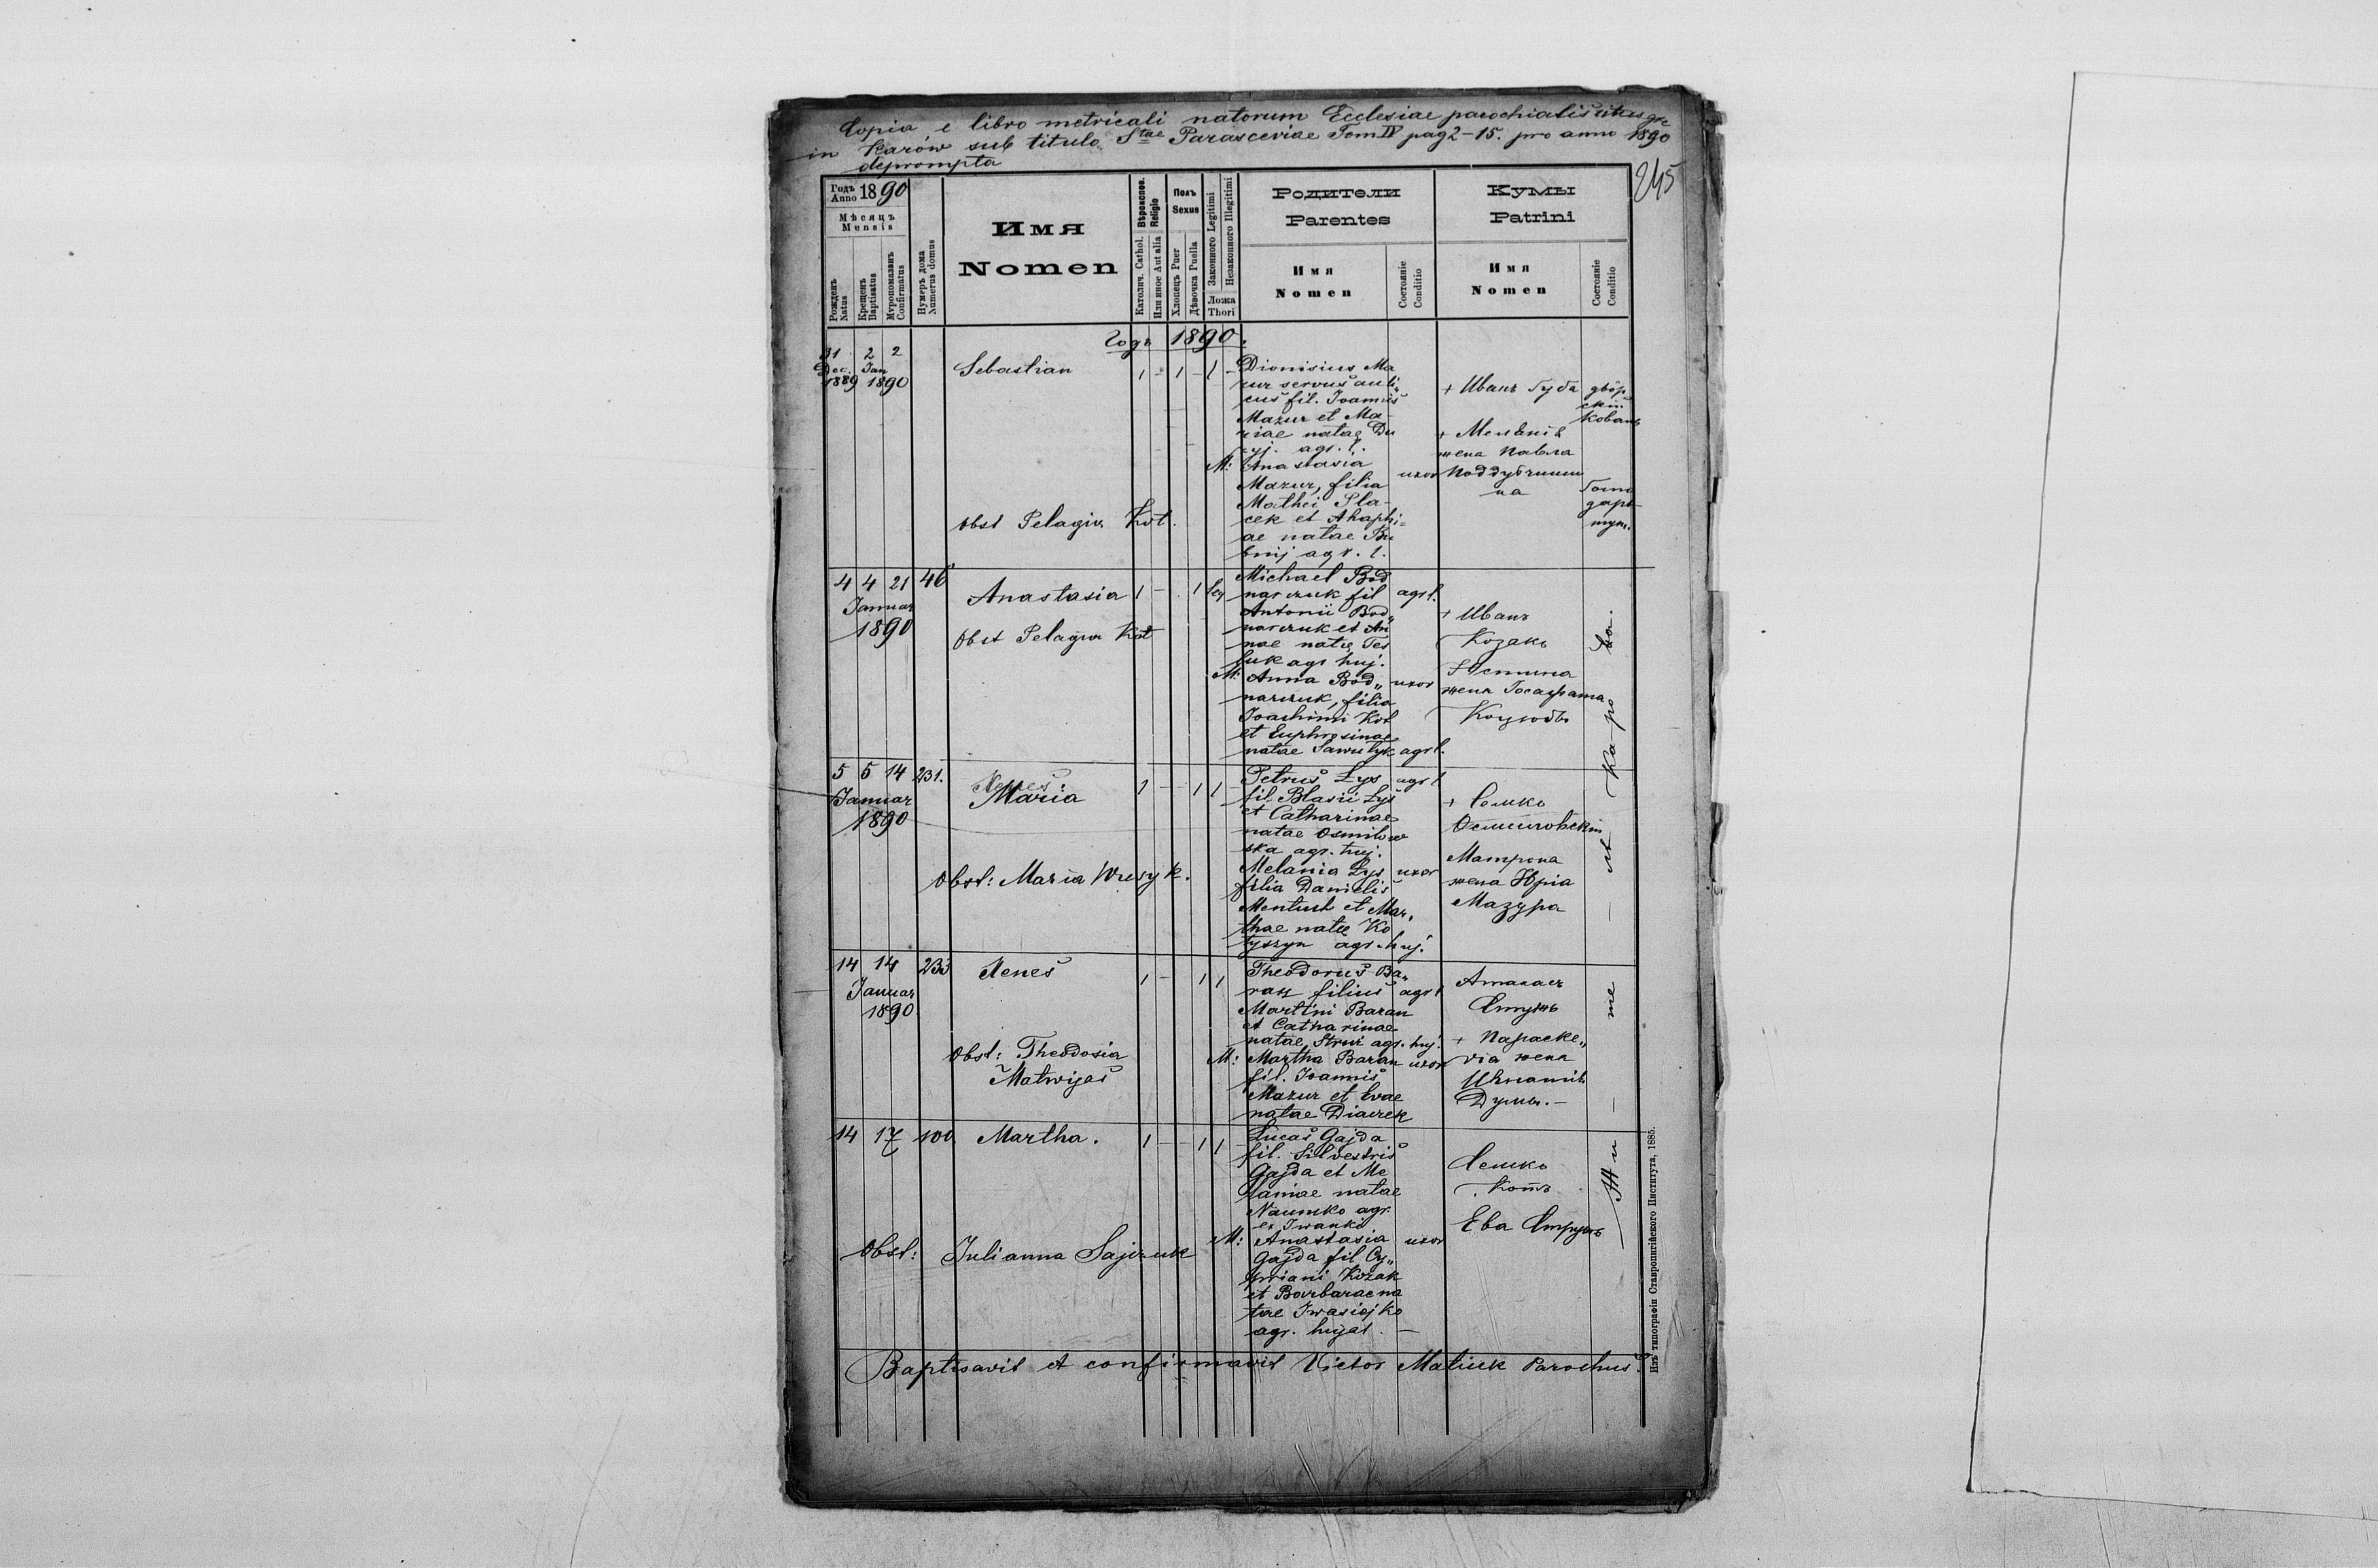 Copia e libro metricali natorum Ecclesiae parochialis ritus gr
in Karów sub titulo Stae Parasceviae Tom IV pag 2-15. pro anno 1890
deprompta
245
Годъ Anno 1890
Мѣсяцъ Mensis
Рожденъ Natus
Крещенъ Baptisatus
Мѵропомазанъ Confirmatus
Нумеръ дома Numerus domus
Имя
Nomen
Вѣроиспов. Religio
Католич. Cathol.
Или иное Aut alia
Полъ Sexus
Хлопецъ Puer
Дѣвочка Puella
Законного Legitimi
Незаконного Illegitimi
Ложа Thori
Родители
Parentes
Имя
Nomen
Состояніе Conditio
Кумы
Patrini
Имя
Nomen
Состояніе Conditio
Годъ 1890.
31 2 2
Dec. Jan
1889 1890
Sebastian
1 - 1 - 1 -
Obst Pelagia Kot.
Dionisius Ma
zur servus auli„
cus fil. Joannis
Mazur et Ma-
riae natae Du
agr. l.
M: Anastasia
uxor
Mazur, filia
Mathei Sla-
cek et Ahaphi=
ae natae Bu
bnij agr. l.
+ Иванъ Губа
двор
скій
коваль
+ Меланія
жена Павла
Поддубчиши
на
Госпо
дарь
4 4 21 46
Januar
1890
Anastasia
1 - 1 leg
Obst Pelagia Kot
Michael Bod
narczuk fil agr l.
Antonii Bod„
narczuk et An
nae natae Tes
luk agr huj.
M: Anna Bod„ uxor
narczuk, filia
Joachimi Kot
et Euphrosinae
natae Sawulyk agr l.
+ Иванъ
Козакъ
+ Юстина
жена Іосафата
Коцюбъ
5 5 14 231.
Januar
1890
Xenes
Maria
1 - 1 1
Obst: Maria Wresyk.
Petrus Lys agr l
fil. Blasii Lys
et Catharinae
natae Osmilow
ska agr. huj.
Melania Lys uxor
filia Danielis
Mentuch et Mar„
thae natae Ko
tyszyn agr. huj.
+ Семко
Осмиловскій
Матрона
жена Юрія
Мазура
14 14 233
Januar
1890
Xenes
1 - 1 1
Obst: Theodosia
Matwijas
Theodorus Ba„
ran filius agr l
Martini Baran
et Catharinae
natae Struz agr. huj.
M: Martha Baran uxor
fil. Joannis
Mazur et Evae
natae Diaczek
Атанасъ
+ Параске„
віа жена
Игнатія
Думы. -
14 17 100
Martha.
1 - 1 1
Obst: Julianna Sajczuk
Lucas Gajda
fil. Silvestris
Gajda et Me
laniae natae
Naumko agr.
ex Iwanki
M: Anastasia uxor
Gajda fil Cy„
priani Kozak
et Barbarae na
tae Iwasiejko
agr. hujat. -
Семко
Котъ
Ева Струзъ
Жи - те - ли Ка-ро-ва.
Baptisavit et confirmavit Victor Matiuk Parochus.
Изъ типографіи Ставропигійского Института, 1885.